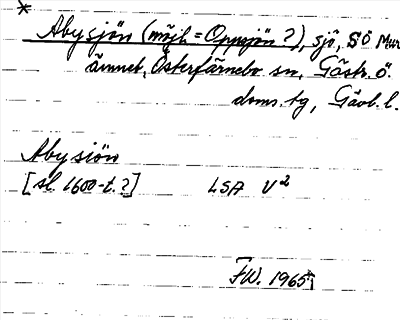 *
Abysjön (möjl. = Oppsjön?), sjö, SÖ Mur
ämnet, Österfärnebo sn, Gästr. ö.
doms. tg, Gävb. l.
Aby siön
[sl. 1600-t.?] LSA V²
FW. 1965